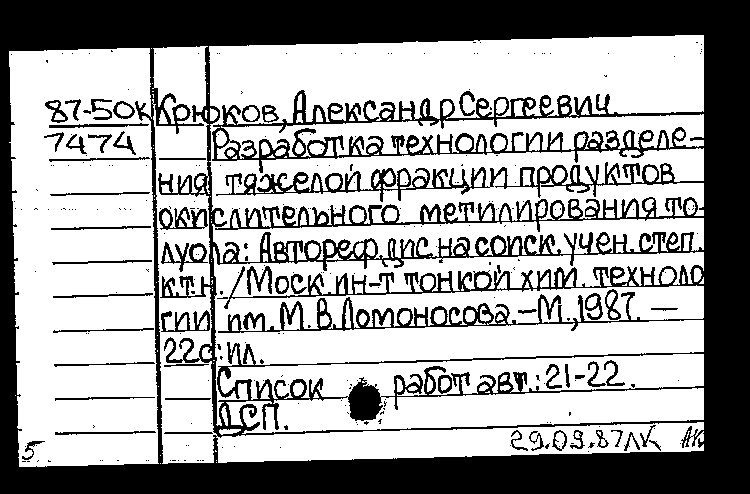 87-50к Крюков, Александр Сергеевич.
7474 Разработка технологии разделе-
ния тяжелой фракции продуктов
окислительного метилирования то-
луола: Автореф. дис. на соиск. учен. степ.
к.т.н. /Моск. ин-т тонкой хим. техноло
гии им. М. В. Ломоносова. -М., 1987. —
22с.: ил.
Список работ авт.: 21-22.
ДСП.
5 29.09.87 ЛК